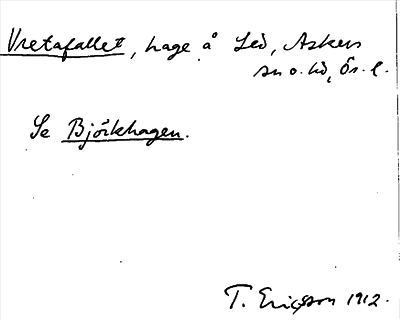 Vretafallet, hage å Led, Askers
sn o. hd, Ör. l.
Se Björkhagen.
T. Ericsson 1912.